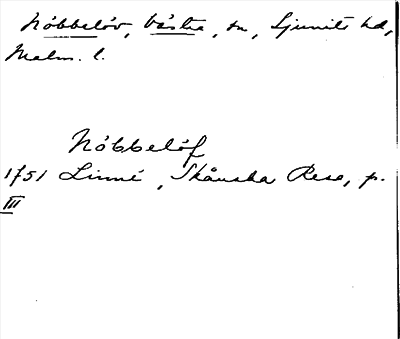 Nöbbelöv, Västra, sn, Ljunits hd,
Malm. l.
Nöbbelöf
1751 Linné, Skånska Resa, p.
III